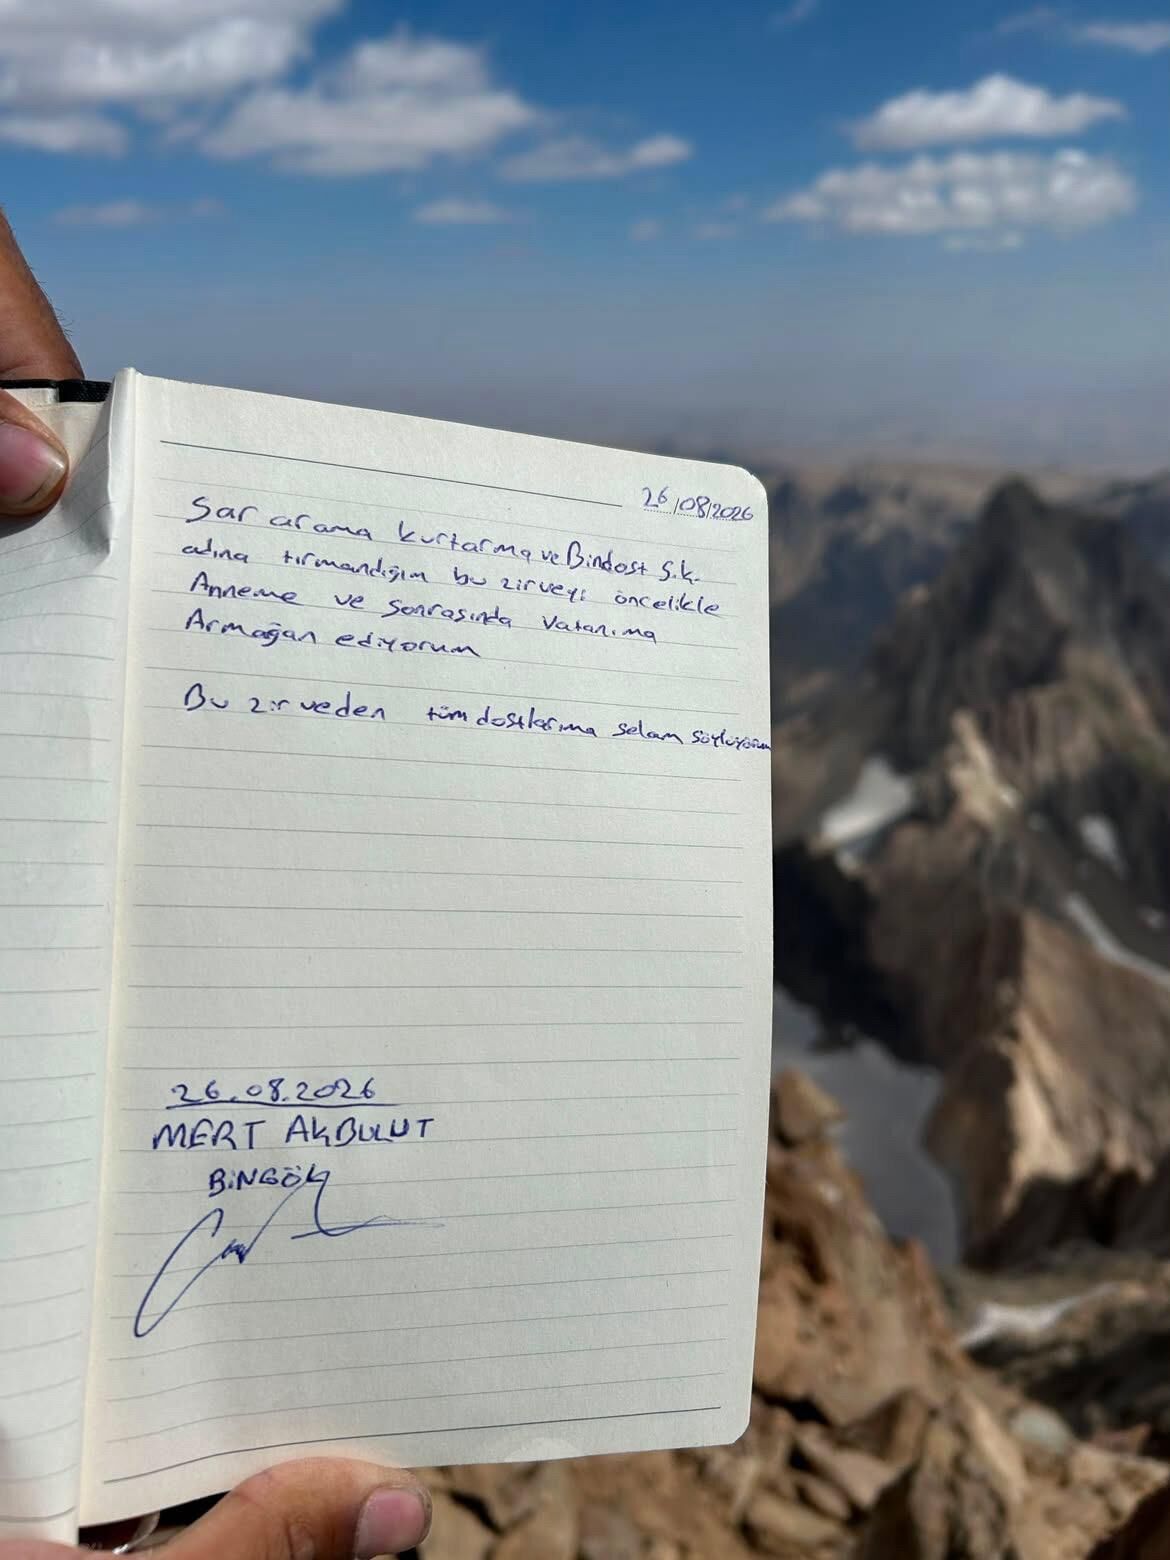 26/08/2026
Sar arama kurtarma ve Bindost S.k.
adına tırmandığım bu zirveyi öncelikle
Anneme ve sonrasında Vatanıma
Armağan ediyorum
Bu zirveden tüm dostlarıma selam söylüyorum
26.08.2026
MERT AKBULUT
BiNGÖL